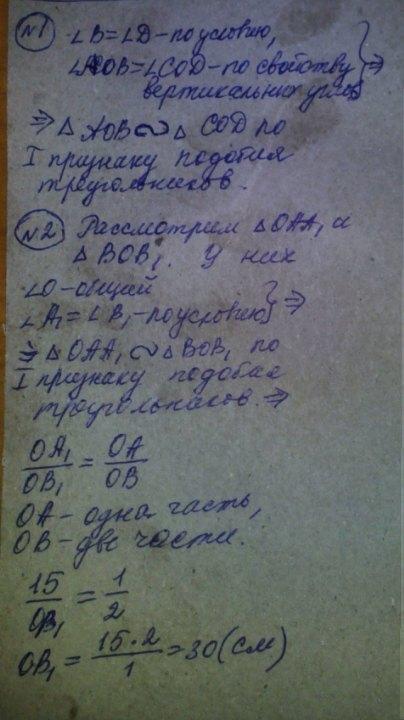 №1 ∠B=∠D-по условию,
∠AOB=∠COD-по свойству
вертикальных углов } ⇒
⇒ △AOB∾△COD по
I признаку подобия
треугольников.
№2 Рассмотрим △OAA₁ и
△BOB₁. У них
∠O-общий
∠A₁=∠B₁-по условию } ⇒
⇒ △OAA₁∾△BOB₁ по
I признаку подобия
треугольников. ⇒
OA₁/OB₁ = OA/OB
OA-одна часть,
OB-две части.
15/OB₁ = 1/2
OB₁ = 15·2/1 = 30(см)